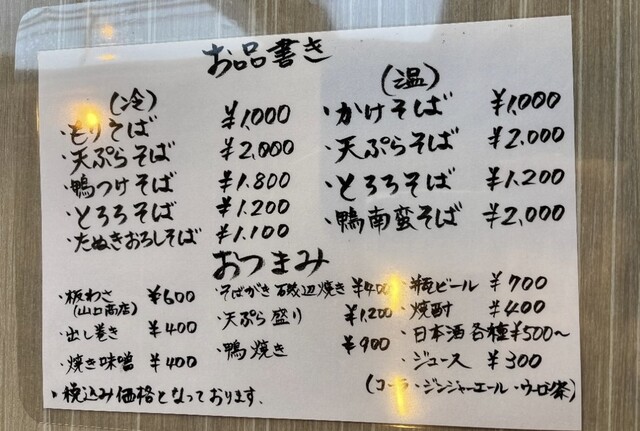 お品書き
(冷)
・もりそば ¥1,000
・天ぷらそば ¥2,000
・鴨つけそば ¥1.800
・とろろそば ¥1.200
・たぬきおろしそば ¥1.100
(温)
・かけそば ¥1,000
・天ぷらそば ¥2,000
・とろろそば ¥1.200
・鴨南蛮そば ¥2,000
おつまみ
・板わさ ¥600
(山口商店)
・出し巻き ¥400
・焼き味噌 ¥400
・そばがき磯辺焼き ¥400
・天ぷら盛り ¥1,200
・鴨焼き ¥900
・瓶ビール ¥700
・焼酎 ¥400
・日本酒各種 ¥500〜
・ジュース ¥300
(コーラ・ジンジャーエール・ウーロン茶)
・税込み価格となっております、